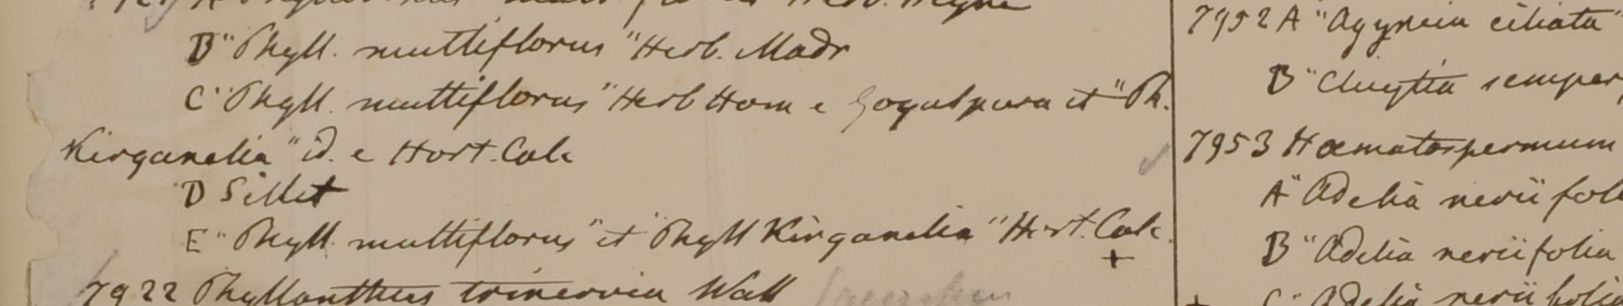 B "Phyll. multiflorus" Herb. Madr
C "Phyll. multiflorus" Herb Ham e Gogalpura et "Ph.
Kirganelia" id. e Hort. Calc
D Sillet
E "Phyll. multiflorus" et "Phyll Kirganelia" Hort. Calc.
7922 Phyllanthus trinervia Wall
7952 A "Agyneia ciliata"
B "Cluytia semper
7953 Hæmatospermum
A "Adelia neriifol
B "Adelia neriifolia
C "Adelia neriifoli